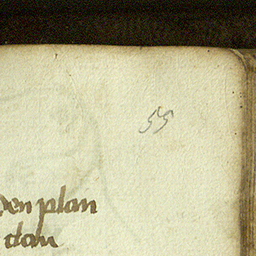 55
den plan
dan